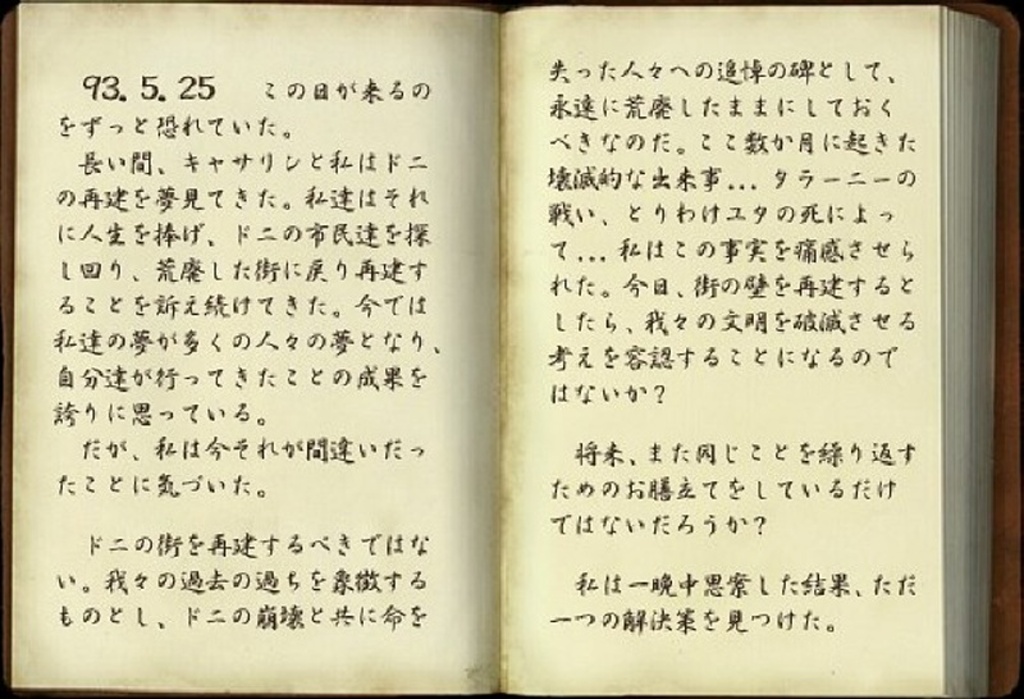 93. 5. 25　この日が来るの
をずっと恐れていた。
長い間、キャサリンと私はドニ
の再建を夢見てきた。私達はそれ
に人生を捧げ、ドニの市民達を探
し回り、荒廃した街に戻り再建す
ることを訴え続けてきた。今では
私達の夢が多くの人々の夢となり、
自分達が行ってきたことの成果を
誇りに思っている。
だが、私は今それが間違いだっ
たことに気づいた。
ドニの街を再建するべきではな
い。我々の過去の過ちを象徴する
ものとし、ドニの崩壊と共に命を
失った人々への追悼の碑として、
永遠に荒廃したままにしておく
べきなのだ。ここ数か月に起きた
壊滅的な出来事... タラーニーの
戦い、とりわけユタの死によっ
て... 私はこの事実を痛感させら
れた。今日、街の壁を再建すると
したら、我々の文明を破滅させる
考えを容認することになるので
はないか?
将来、また同じことを繰り返す
ためのお膳立てをしているだけ
ではないだろうか?
私は一晩中思案した結果、ただ
一つの解決策を見つけた。